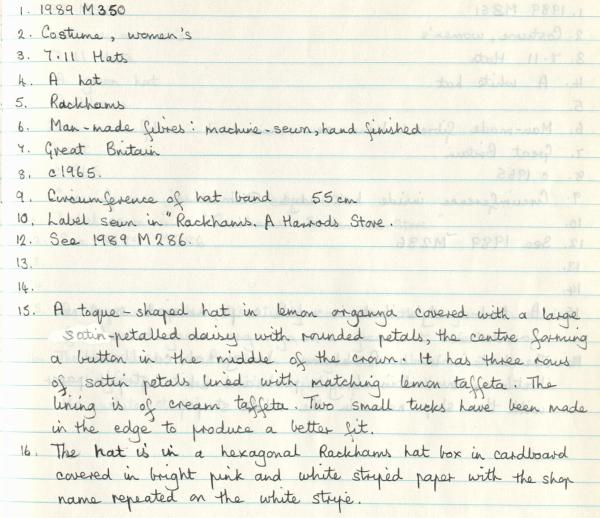 1. 1989 M350
2. Costume, women's
3. 7.11 Hats
4. A hat
5. Rackhams
6. Man-made fibres: machine-sewn, hand finished
7. Great Britain
8. c1965.
9. Circumference of hat band 55cm
10. Label sewn in "Rackhams. A Harrods Store.
12. See 1989 M286.
13.
14.
15. A toque-shaped hat in lemon organza covered with a large
satin-petalled daisy with rounded petals, the centre forming
a button in the middle of the crown. It has three rows
of satin petals lined with matching lemon taffeta. The
lining is of cream taffeta. Two small tucks have been made
in the edge to produce a better fit.
16. The hat is in a hexagonal Rackhams hat box in cardboard
covered in bright pink and white striped paper with the shop
name repeated on the white stripe.